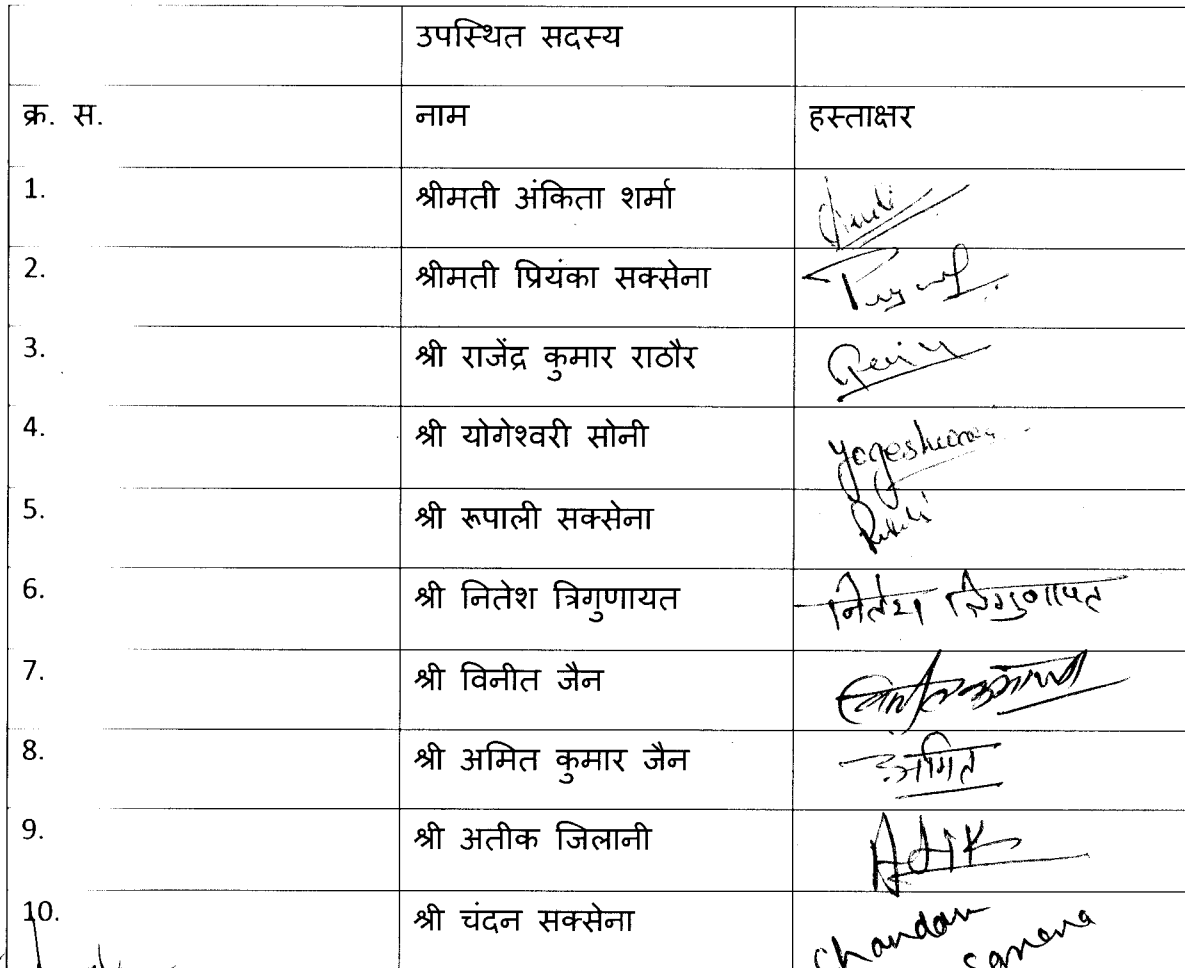 उपस्थित सदस्य
क्र. स. नाम हस्ताक्षर
1. श्रीमती अंकिता शर्मा
2. श्रीमती प्रियंका सक्सेना
3. श्री राजेंद्र कुमार राठौर
4. श्री योगेश्वरी सोनी
5. श्री रूपाली सक्सेना
6. श्री नितेश त्रिगुणायत नितेश त्रिगुणायत
7. श्री विनीत जैन
8. श्री अमित कुमार जैन अमित
9. श्री अतीक जिलानी Atik
10. श्री चंदन सक्सेना Chandan